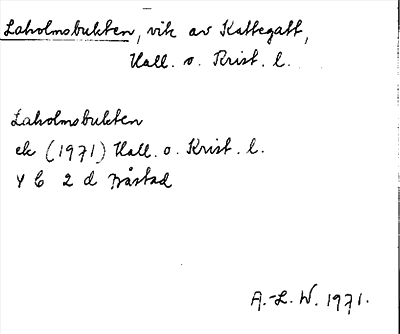 Laholmsbukten, vik av Kattegatt,
Hall. o. Krist. l.
Laholmsbukten
ek (1971) Hall. o. Krist. l.
4 C 2 d Båstad
A.-L. W. 1971.